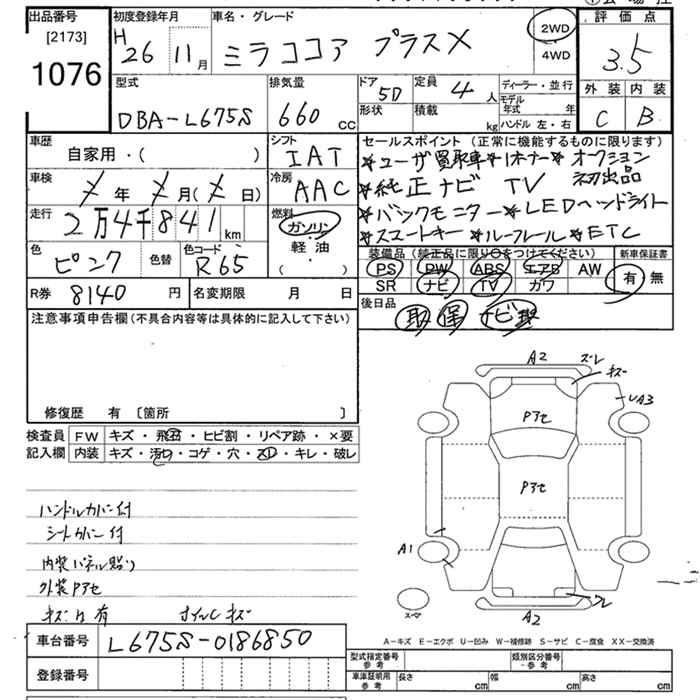 出品番号
[2173]
1076
初度登録年月
H 26 11月
車名・グレード
ミラココア プラスX
2WD
4WD
評価点
3.5
外装 内装
C B
型式
DBA-L675S
排気量
660 cc
ドア
5D
形状
定員
4人
積載
kg
ディーラー・並行
モデル年式 年
ハンドル 左・右
車歴
自家用・( )
シフト
IAT
車検
年 月(日)
冷房
AAC
走行
2万4千841km
燃料
ガソリン
軽油
( ・ )
色
ピンク
色替
色コード
R65
R券 8140 円
名変期限 月 日
セールスポイント(正常に機能するものに限ります)
*ユーザ買取車*1オーナー*オークション初出品
*純正ナビ TV
*バックモニター*LEDヘッドライト
*スマートキー *ルーフレール*ETC
装備品(純正品に限り○をつけてください)
PS PW ABS エアB AW
SR ナビ TV カワ
新車保証書
有 無
後日品
取 保 ナビ取
注意事項申告欄(不具合内容等は具体的に記入して下さい)
修復歴 有 〔箇所 〕
検査員記入欄
FW キズ・飛石・ヒビ割・リペア跡・×要
内装 キズ・汚れ・コゲ・穴・スレ・キレ・破レ
ハンドルカバー付
シートカバー付
内装パネル貼り
外装Pアセ
キズ 有 ホイルCキズ
A2 ズレ
キズ
UA3
Pアセ
Pアセ
A1
A2
スーマ
A-キズ E-エクボ U-凹み W-補修跡 S-サビ C-腐食 XX-交換済
車台番号
L675S-0186850
登録番号
型式指定番号 参考
類別区分番号・参考
車庫証明用 参考
長さ cm 幅 cm 高さ cm